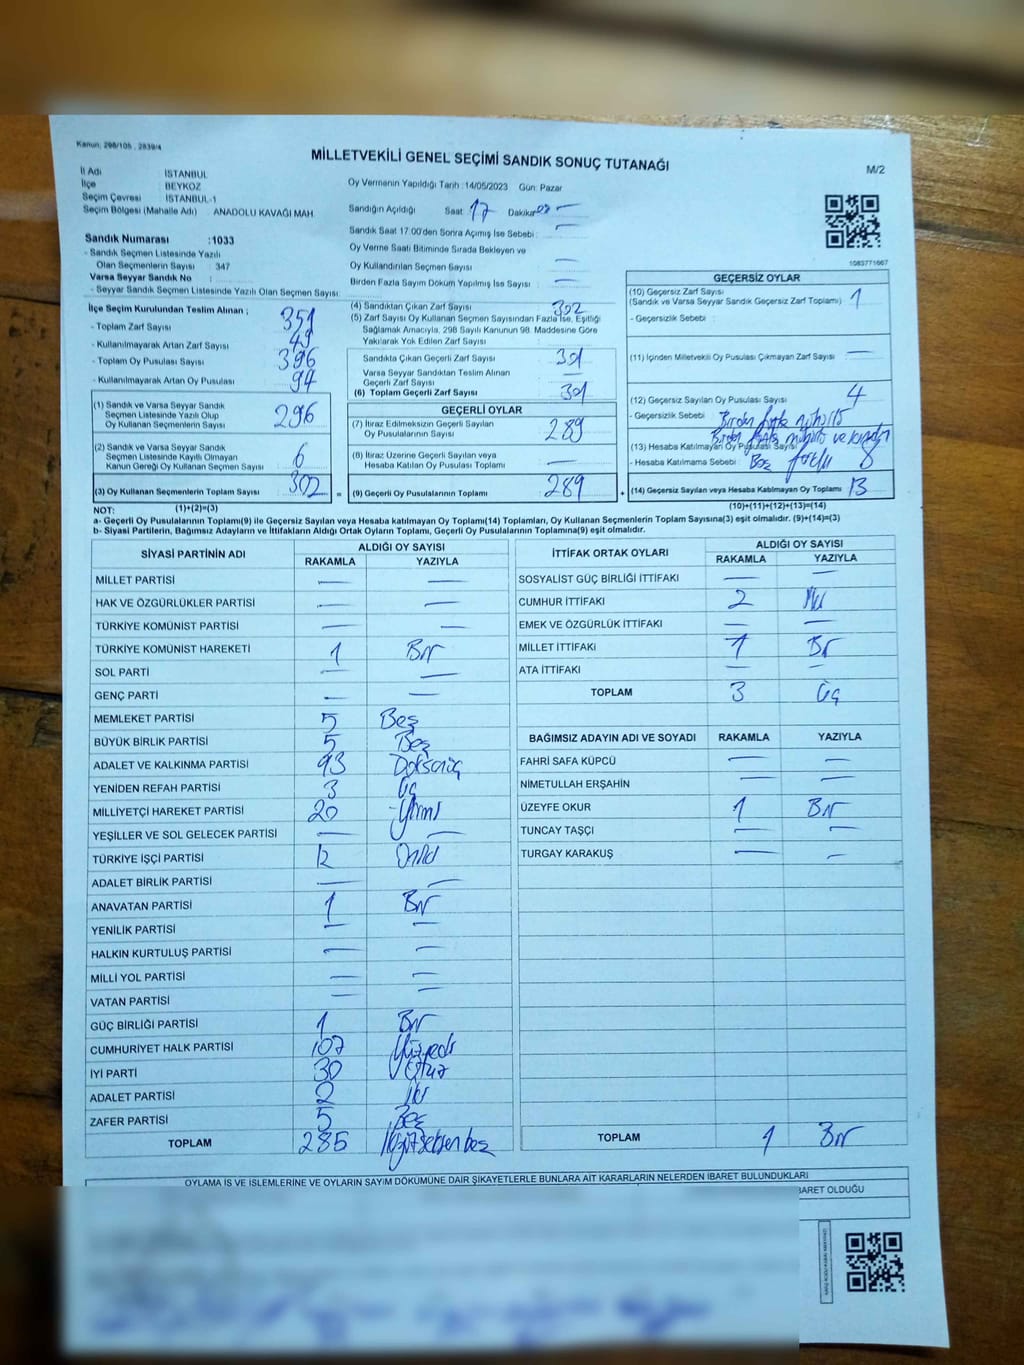 Kanun: 298/105 , 2839/4
MİLLETVEKİLİ GENEL SEÇİMİ SANDIK SONUÇ TUTANAĞI
M/2
İl Adı : İSTANBUL
İlçe : BEYKOZ
Seçim Çevresi : İSTANBUL-1
Seçim Bölgesi (Mahalle Adı) : ANADOLU KAVAĞI MAH.
Oy Vermenin Yapıldığı Tarih :14/05/2023 Gün: Pazar
Sandığın Açıldığı Saat 17 Dakika —
Sandık Saat 17:00'den Sonra Açılmış İse Sebebi : —
Oy Verme Saati Bitiminde Sırada Bekleyen ve
Oy Kullandırılan Seçmen Sayısı —
Birden Fazla Sayım Döküm Yapılmış İse Sayısı : —
1083771667
Sandık Numarası :1033
- Sandık Seçmen Listesinde Yazılı
Olan Seçmenlerin Sayısı : 347
Varsa Seyyar Sandık No :
- Seyyar Sandık Seçmen Listesinde Yazılı Olan Seçmen Sayısı:
İlçe Seçim Kurulundan Teslim Alınan ;
- Toplam Zarf Sayısı : 351
- Kullanılmayarak Artan Zarf Sayısı : 49
- Toplam Oy Pusulası Sayısı : 396
- Kullanılmayarak Artan Oy Pusulası : 94
(1) Sandık ve Varsa Seyyar Sandık
Seçmen Listesinde Yazılı Olup
Oy Kullanan Seçmenlerin Sayısı 296
(2) Sandık ve Varsa Seyyar Sandık
Seçmen Listesinde Kayıtlı Olmayan
Kanun Gereği Oy Kullanan Seçmen Sayısı 6
(3) Oy Kullanan Seçmenlerin Toplam Sayısı 302 =
(4) Sandıktan Çıkan Zarf Sayısı : 302
(5) Zarf Sayısı Oy Kullanan Seçmen Sayısından Fazla İse, Eşitliği
Sağlamak Amacıyla, 298 Sayılı Kanunun 98. Maddesine Göre
Yakılarak Yok Edilen Zarf Sayısı : —
Sandıkta Çıkan Geçerli Zarf Sayısı 301
Varsa Seyyar Sandıktan Teslim Alınan
Geçerli Zarf Sayısı —
(6) Toplam Geçerli Zarf Sayısı 301
GEÇERLİ OYLAR
(7) İtiraz Edilmeksizin Geçerli Sayılan
Oy Pusulalarının Sayısı : 289
(8) İtiraz Üzerine Geçerli Sayılan veya
Hesaba Katılan Oy Pusulası Toplamı : —
(9) Geçerli Oy Pusulalarının Toplamı 289 +
GEÇERSİZ OYLAR
(10) Geçersiz Zarf Sayısı
(Sandık ve Varsa Seyyar Sandık Geçersiz Zarf Toplamı) : 1
- Geçersizlik Sebebi :
(11) İçinden Milletvekili Oy Pusulası Çıkmayan Zarf Sayısı : —
(12) Geçersiz Sayılan Oy Pusulası Sayısı : 4
- Geçersizlik Sebebi : Birden fazla mühür
(13) Hesaba Katılmayan Oy Pusulası Sayısı : 8
- Hesaba Katılmama Sebebi : Boş
(14) Geçersiz Sayılan veya Hesaba Katılmayan Oy Toplamı 13
NOT: (1)+(2)=(3) (10)+(11)+(12)+(13)=(14)
a- Geçerli Oy Pusulalarının Toplamı(9) ile Geçersiz Sayılan veya Hesaba katılmayan Oy Toplamı(14) Toplamları, Oy Kullanan Seçmenlerin Toplam Sayısına(3) eşit olmalıdır. (9)+(14)=(3)
b- Siyasi Partilerin, Bağımsız Adayların ve İttifakların Aldığı Ortak Oyların Toplamı, Geçerli Oy Pusulalarının Toplamına(9) eşit olmalıdır.
SİYASİ PARTİNİN ADI ALDIĞI OY SAYISI
RAKAMLA YAZIYLA
MİLLET PARTİSİ — —
HAK VE ÖZGÜRLÜKLER PARTİSİ — —
TÜRKİYE KOMÜNİST PARTİSİ — —
TÜRKİYE KOMÜNİST HAREKETİ 1 Bir
SOL PARTİ — —
GENÇ PARTİ — —
MEMLEKET PARTİSİ 5 Beş
BÜYÜK BİRLİK PARTİSİ 5 Beş
ADALET VE KALKINMA PARTİSİ 93 Doksanüç
YENİDEN REFAH PARTİSİ 3 Üç
MİLLİYETÇİ HAREKET PARTİSİ 20 Yirmi
YEŞİLLER VE SOL GELECEK PARTİSİ — —
TÜRKİYE İŞÇİ PARTİSİ 12 Oniki
ADALET BİRLİK PARTİSİ — —
ANAVATAN PARTİSİ 1 Bir
YENİLİK PARTİSİ — —
HALKIN KURTULUŞ PARTİSİ — —
MİLLİ YOL PARTİSİ — —
VATAN PARTİSİ — —
GÜÇ BİRLİĞİ PARTİSİ 1 Bir
CUMHURİYET HALK PARTİSİ 107 Yüzyedi
İYİ PARTİ 30 Otuz
ADALET PARTİSİ 2 İki
ZAFER PARTİSİ 5 Beş
TOPLAM 285 İkiyüzseksenbeş
İTTİFAK ORTAK OYLARI ALDIĞI OY SAYISI
RAKAMLA YAZIYLA
SOSYALİST GÜÇ BİRLİĞİ İTTİFAKI — —
CUMHUR İTTİFAKI 2 İki
EMEK VE ÖZGÜRLÜK İTTİFAKI — —
MİLLET İTTİFAKI 1 Bir
ATA İTTİFAKI — —
TOPLAM 3 Üç
BAĞIMSIZ ADAYIN ADI VE SOYADI RAKAMLA YAZIYLA
FAHRİ SAFA KÜPCÜ — —
NİMETULLAH ERŞAHİN — —
ÜZEYFE OKUR 1 Bir
TUNCAY TAŞÇI — —
TURGAY KARAKUŞ — —
TOPLAM 1 Bir
OYLAMA İŞ VE İŞLEMLERİNE VE OYLARIN SAYIM DÖKÜMÜNE DAİR ŞİKAYETLERLE BUNLARA AİT KARARLARIN NELERDEN İBARET BULUNDUKLARI
BARET OLDUĞU